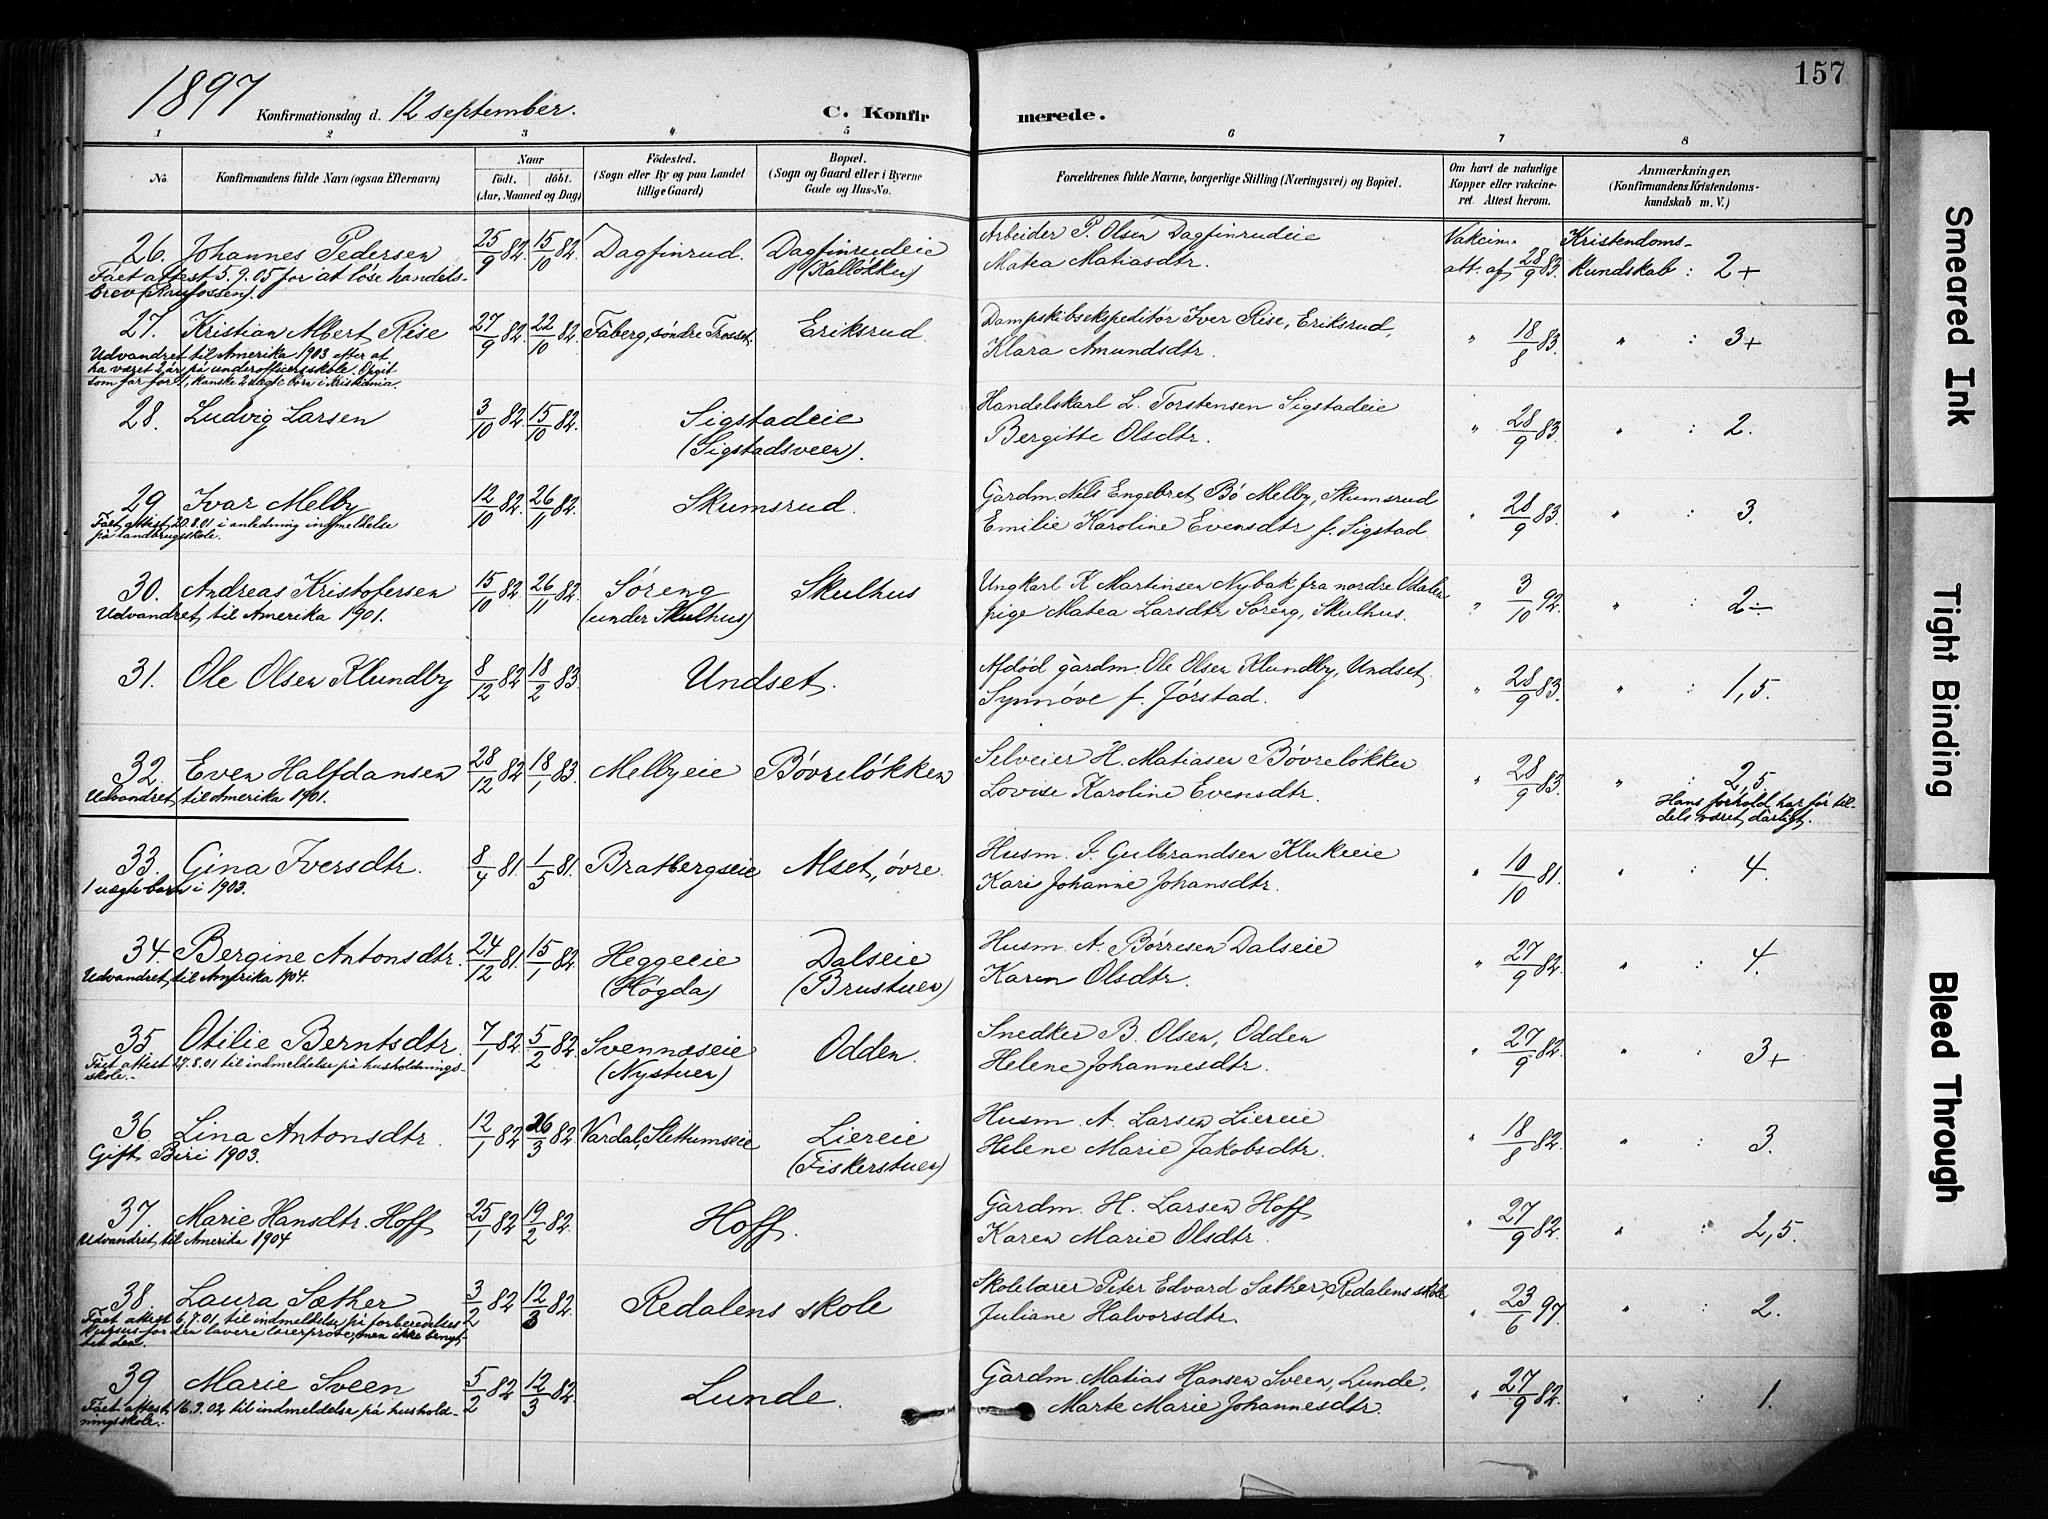 1897 Konfirmationsdag d. 12 september. C. Konfirmerede. 157
1 2 3 4 5 6 7 8
No. Konfirmandens fulde Navn (ogsaa Efternavn) Naar født. døbt. (Aar, Maaned og Dag) Födested. (Sogn eller By og paa Landet tillige Gaard) Bopæl. (Sogn og Gaard eller i Byerne Gade og Hus-No. Forældrenes fulde Navne, borgerlige Stilling (Næringsvei) og Bopæl. Om havt de naturlige Kopper eller vakcineret. Attest herom. Anmærkninger. (Konfirmandens Kristendomskundskab m. V.)
26. Johannes Pedersen 25/9 82. 15/10 82. Dagfinrud. Dagfinrudeie (Kalløkken) Arbeider P. Olsen Dagfinrudeie Vakcin. Kristendoms-
Matea Matiasdtr. att. af 28/9 83. kundskab : 2+
Fået attest 5.9.05 for at løse handels-
brev (Raufossen).
27. Kristian Albert Rise 27/9 82. 22/10 82. Fåberg, søndre Troset. Eriksrud. Dampskibsekspeditør Iver Rise, Eriksrud,
Klara Amundsdtr. " 18/8 83. " : 3+
Udvandret til Amerika 1903 efter at
ha været 2 år på underofficersskole. Opgit
som far for 1, kanske 2 uægte børn i Kristiania.
28. Ludvig Larsen 3/10 82. 15/10 82. Sigstadeie (Sigstadsveen). Handelskarl L. Torstensen Sigstadeie
Bergitte Olsdtr. " 28/9 83. " : 2.
29. Ivar Melby 12/10 82. 26/11 82. Skumsrud. Gårdm. Nels Engebret Bø Melby, Skumsrud
Emilie Karoline Evensdtr f. Sigstad. " 28/9 83. " : 3.
Fået attest 20.8.01 i anledning indmeldelse
på landbrugsskole.
30. Andreas Kristofersen 15/10 82. 26/11 82. Søreng (under Skulhus) Skulhus Ungkarl K. Martinsen Nybak fra nordre Odalen
pige Matea Larsdtr Søreng, Skulhus. " 3/10 92. " : 2÷
Udvandret til Amerika 1901.
31. Ole Olsen Klundby 8/12 82. 18/2 83. Undset. Afdød gårdm. Ole Olsen Klundby, Undset.
Synnøve f. Jørstad. " 28/9 83. " : 1,5.
32. Even Halfdansen 28/12 82. 18/1 83. Melbyeie Bøvreløkken Selveier H. Matiasen Bøvreløkken
Lovise Karoline Evensdtr. " 28/9 83. " : 2,5.
Udvandret til Amerika 1901. Hans forhold har før til-
dels været dårligt.
33. Gina Iversdtr. 8/4 81. 1/5 81. Bratbergseie Alset, øvre. Husm. I. Gulbrandsen Klukeeie
Kari Johanne Johansdtr. " 10/10 81. " : 4.
1 uægte barn i 1903.
34. Bergine Antonsdtr. 24/12 81. 15/1 82. Heggeeie (Høgda) Dalseie (Brustuen) Husm. A. Børresen Dalseie
Karen Olsdtr. " 27/9 82. " : 4.
Udvandret til Amerika 1904.
35 Otilie Berntsdtr. 7/1 82. 5/2 82. Svennæseie (Nystuen) Odden. Snedker B. Olsen, Odden
Helene Johannesdtr. " 27/9 82. " : 3+
Fået attest 27.8.01 til indmeldelse på husholdnings-
skole.
36. Lina Antonsdtr. 12/1 82 26/3 82. Vardal, Slettumseie Liereie (Fiskerstuen) Husm. A. Larsen Liereie
Helene Marie Jakobsdtr. " 18/8 82. " : 3.
Gift Biri 1903.
37. Marie Hansdtr. Hoff 25/1 82 19/2 82. Hoff. Gårdm. H. Larsen Hoff
Karen Marie Olsdtr. " 27/9 82. " : 2,5.
Udvandret til Amerika 1904
38. Laura Sæther 3/2 82 12/3 82. Redalens skole Skolelærer Peter Edvard Sæther, Redalens skole
Juliane Halvorsdtr. " 23/6 97. " : 2.
Fået attest 6.7.01 til indmeldelse på forberedelses
kursus for den lavere lærerprøve, men ikke benyt-
tet den.
39. Marie Sveen 5/2 82 12/3 82. Lunde. Gårdm. Matias Hansen Sveen, Lunde.
Marte Marie Johannesdtr. " 27/9 82. " : 1.
Fået attest 16.9.02 til indmeldelse på hushold-
ningsskole.
Smeared Ink
Tight Binding
Bleed Through